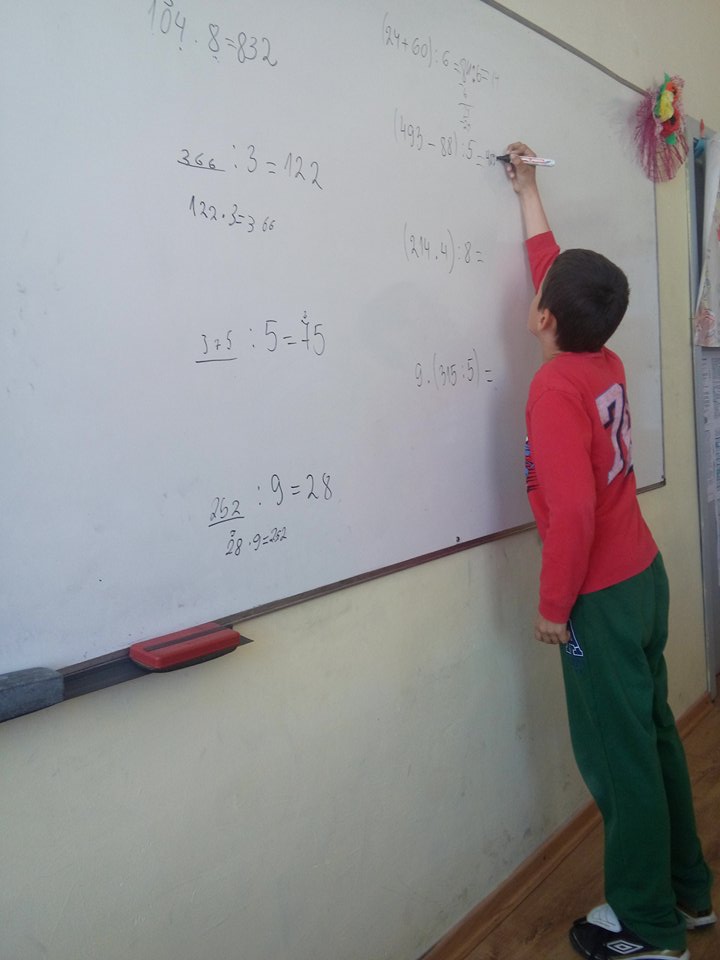 104 . 8 = 832
366 : 3 = 122
122 . 3 = 366
375 : 5 = 75
252 : 9 = 28
28 . 9 = 252
(24 + 60) : 6 = 84 : 6 = 14
(493 - 88) : 5 =
(214 . 4) : 8 =
9 . (315 : 5) =